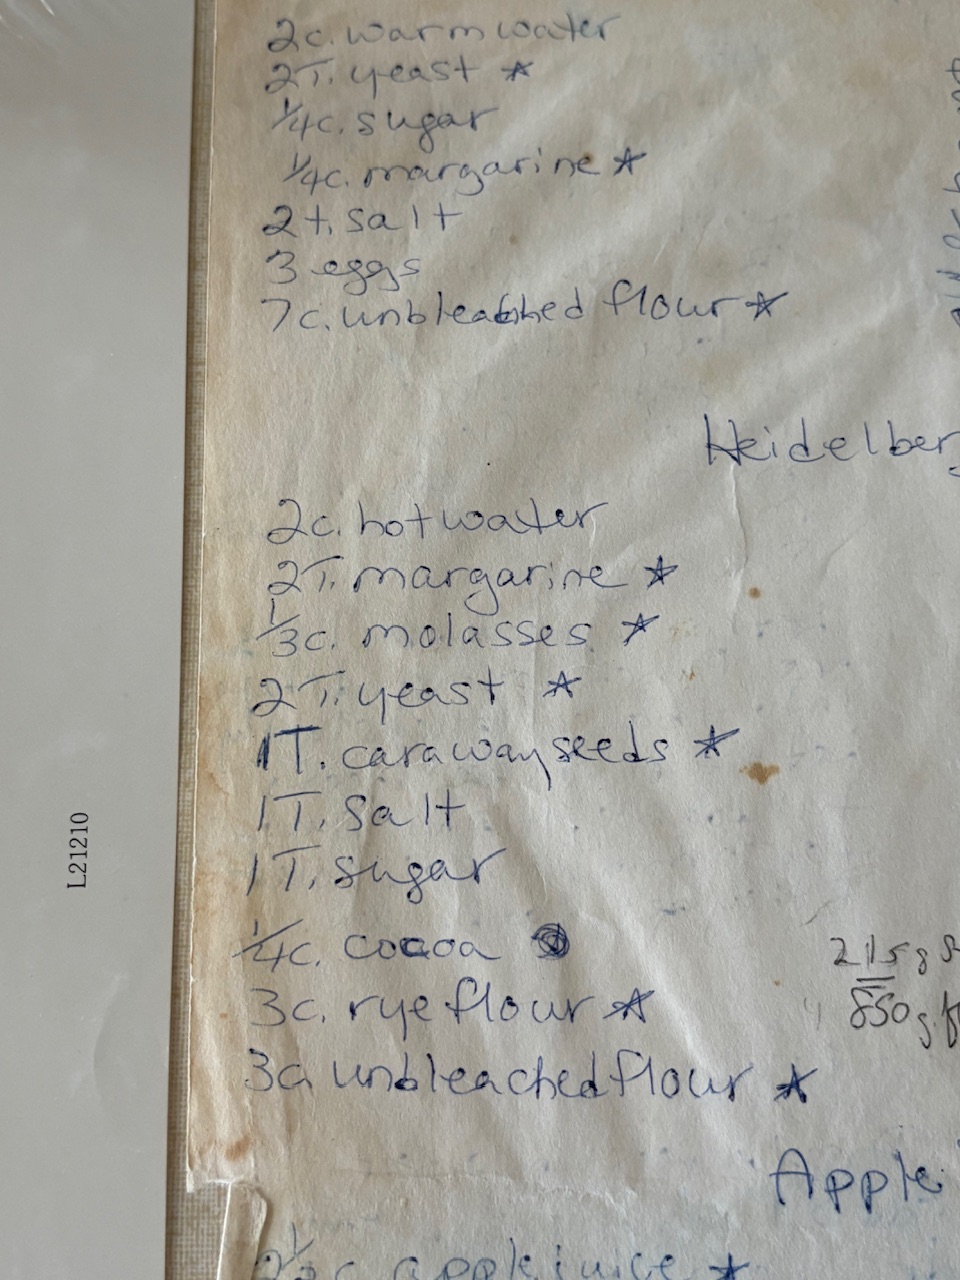 2c. warm water
2T. yeast ☆
1/4c. sugar
1/4c. margarine ☆
2t. salt
3 eggs
7c. unbleached flour ☆
Heidelber
2c. hot water
2T. margarine ☆
1/3c. molasses ☆
2T. yeast ☆
1T. caraway seeds ☆
1T. salt
1T. sugar
1/4c. cocoa
3c. rye flour ☆
3c. unbleached flour ☆
215g
850g.
Apple
2 1/2 c apple juice ☆
L21210